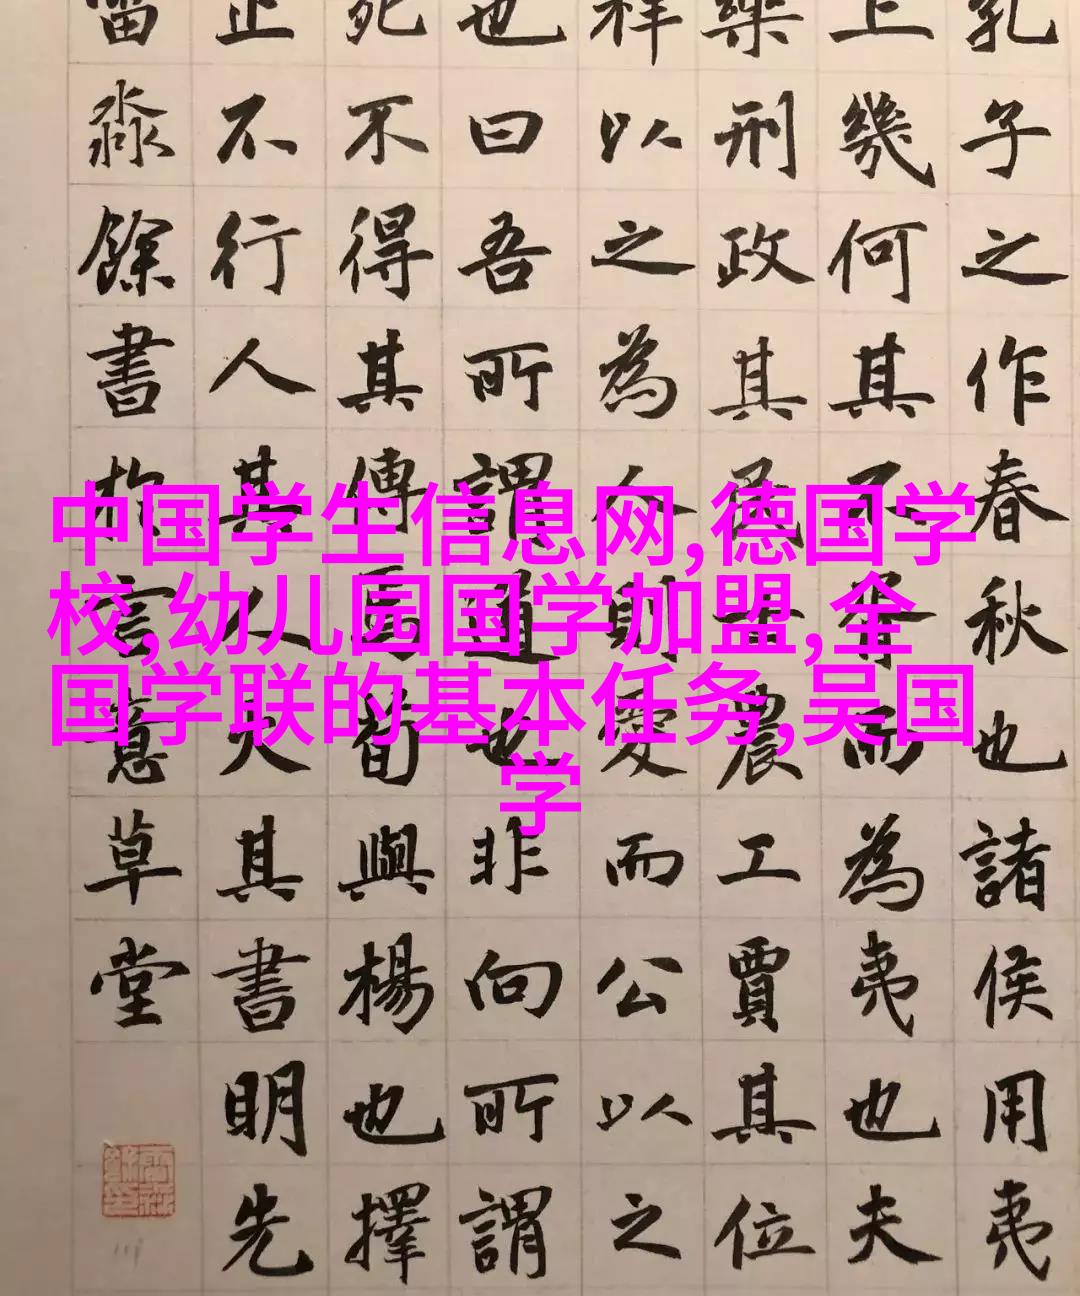 中国学生信息网,德国学
校,幼儿园国学加盟,全
国学联的基本任务,吴国
学
孔子之作春秋也諸侯用夷
上幾何其不胥而為夷也夫
樂刑政其民士農工賈其位
祥以之為人則愛而公以之
也曰吾所謂道也非向所謂
死不得其傳焉荀與楊也擇
止不行人其人火其書明先
淼餘書於言意草堂